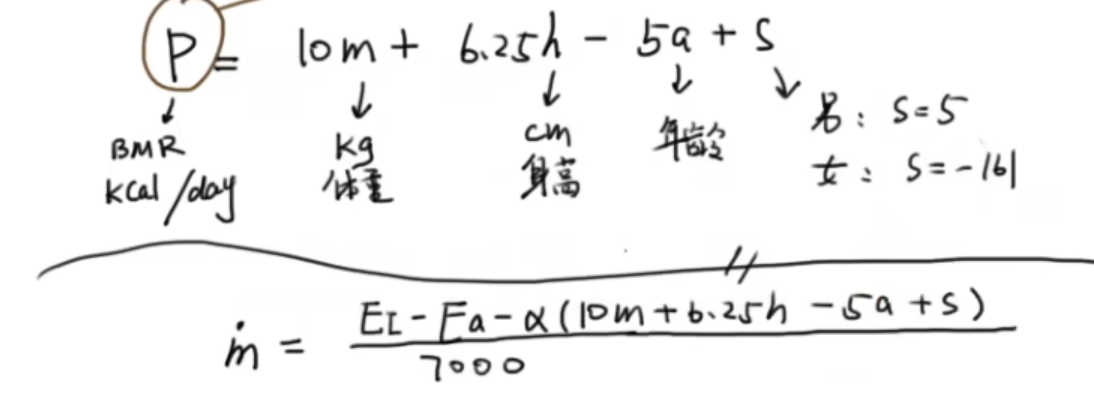 P = 10m + 6.25h - 5a + s
BMR
kcal/day
kg
体重
cm
身高
年龄
男: s=5
女: s=-161
ṁ = (E_I - E_a - α(10m + 6.25h - 5a + s)) / 7000